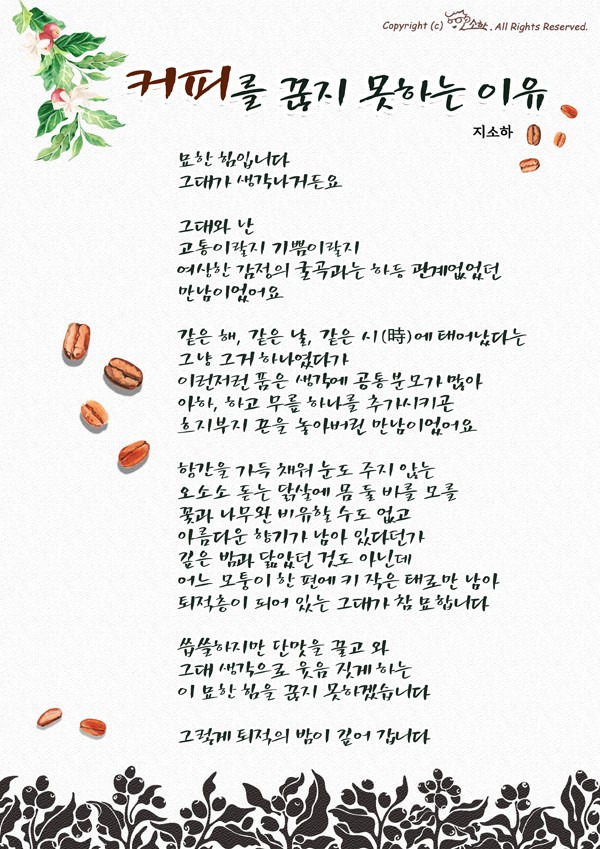 Copyright (c) 소하. All Rights Reserved.
커피를 끊지 못하는 이유
지소하
묘한 힘입니다
그대가 생각나거든요
그대와 난
고통이랄지 기쁨이랄지
여상한 감정의 굴곡과는 하등 관계없었던
만남이었어요
같은 해, 같은 날, 같은 시(時)에 태어났다는
그냥 그거 하나였다가
이런저런 품은 생각에 공통분모가 많아
아하, 하고 무릎 하나를 추가시키곤
흐지부지 끈을 놓아버린 만남이었어요
행간을 가득 채워 눈도 주지 않는
오소소 돋는 닭살에 몸 둘 바를 모를
꽃과 나무완 비유할 수도 없고
아름다운 향기가 남아 있다던가
깊은 밤과 닮았던 것도 아닌데
어느 모퉁이 한 편에 키 작은 태로만 남아
퇴적층이 되어 있는 그대가 참 묘합니다
씁쓸하지만 단맛을 끌고 와
그대 생각으로 웃음 짓게 하는
이 묘한 힘을 끊지 못하겠습니다
그렇게 퇴적의 밤이 깊어 갑니다